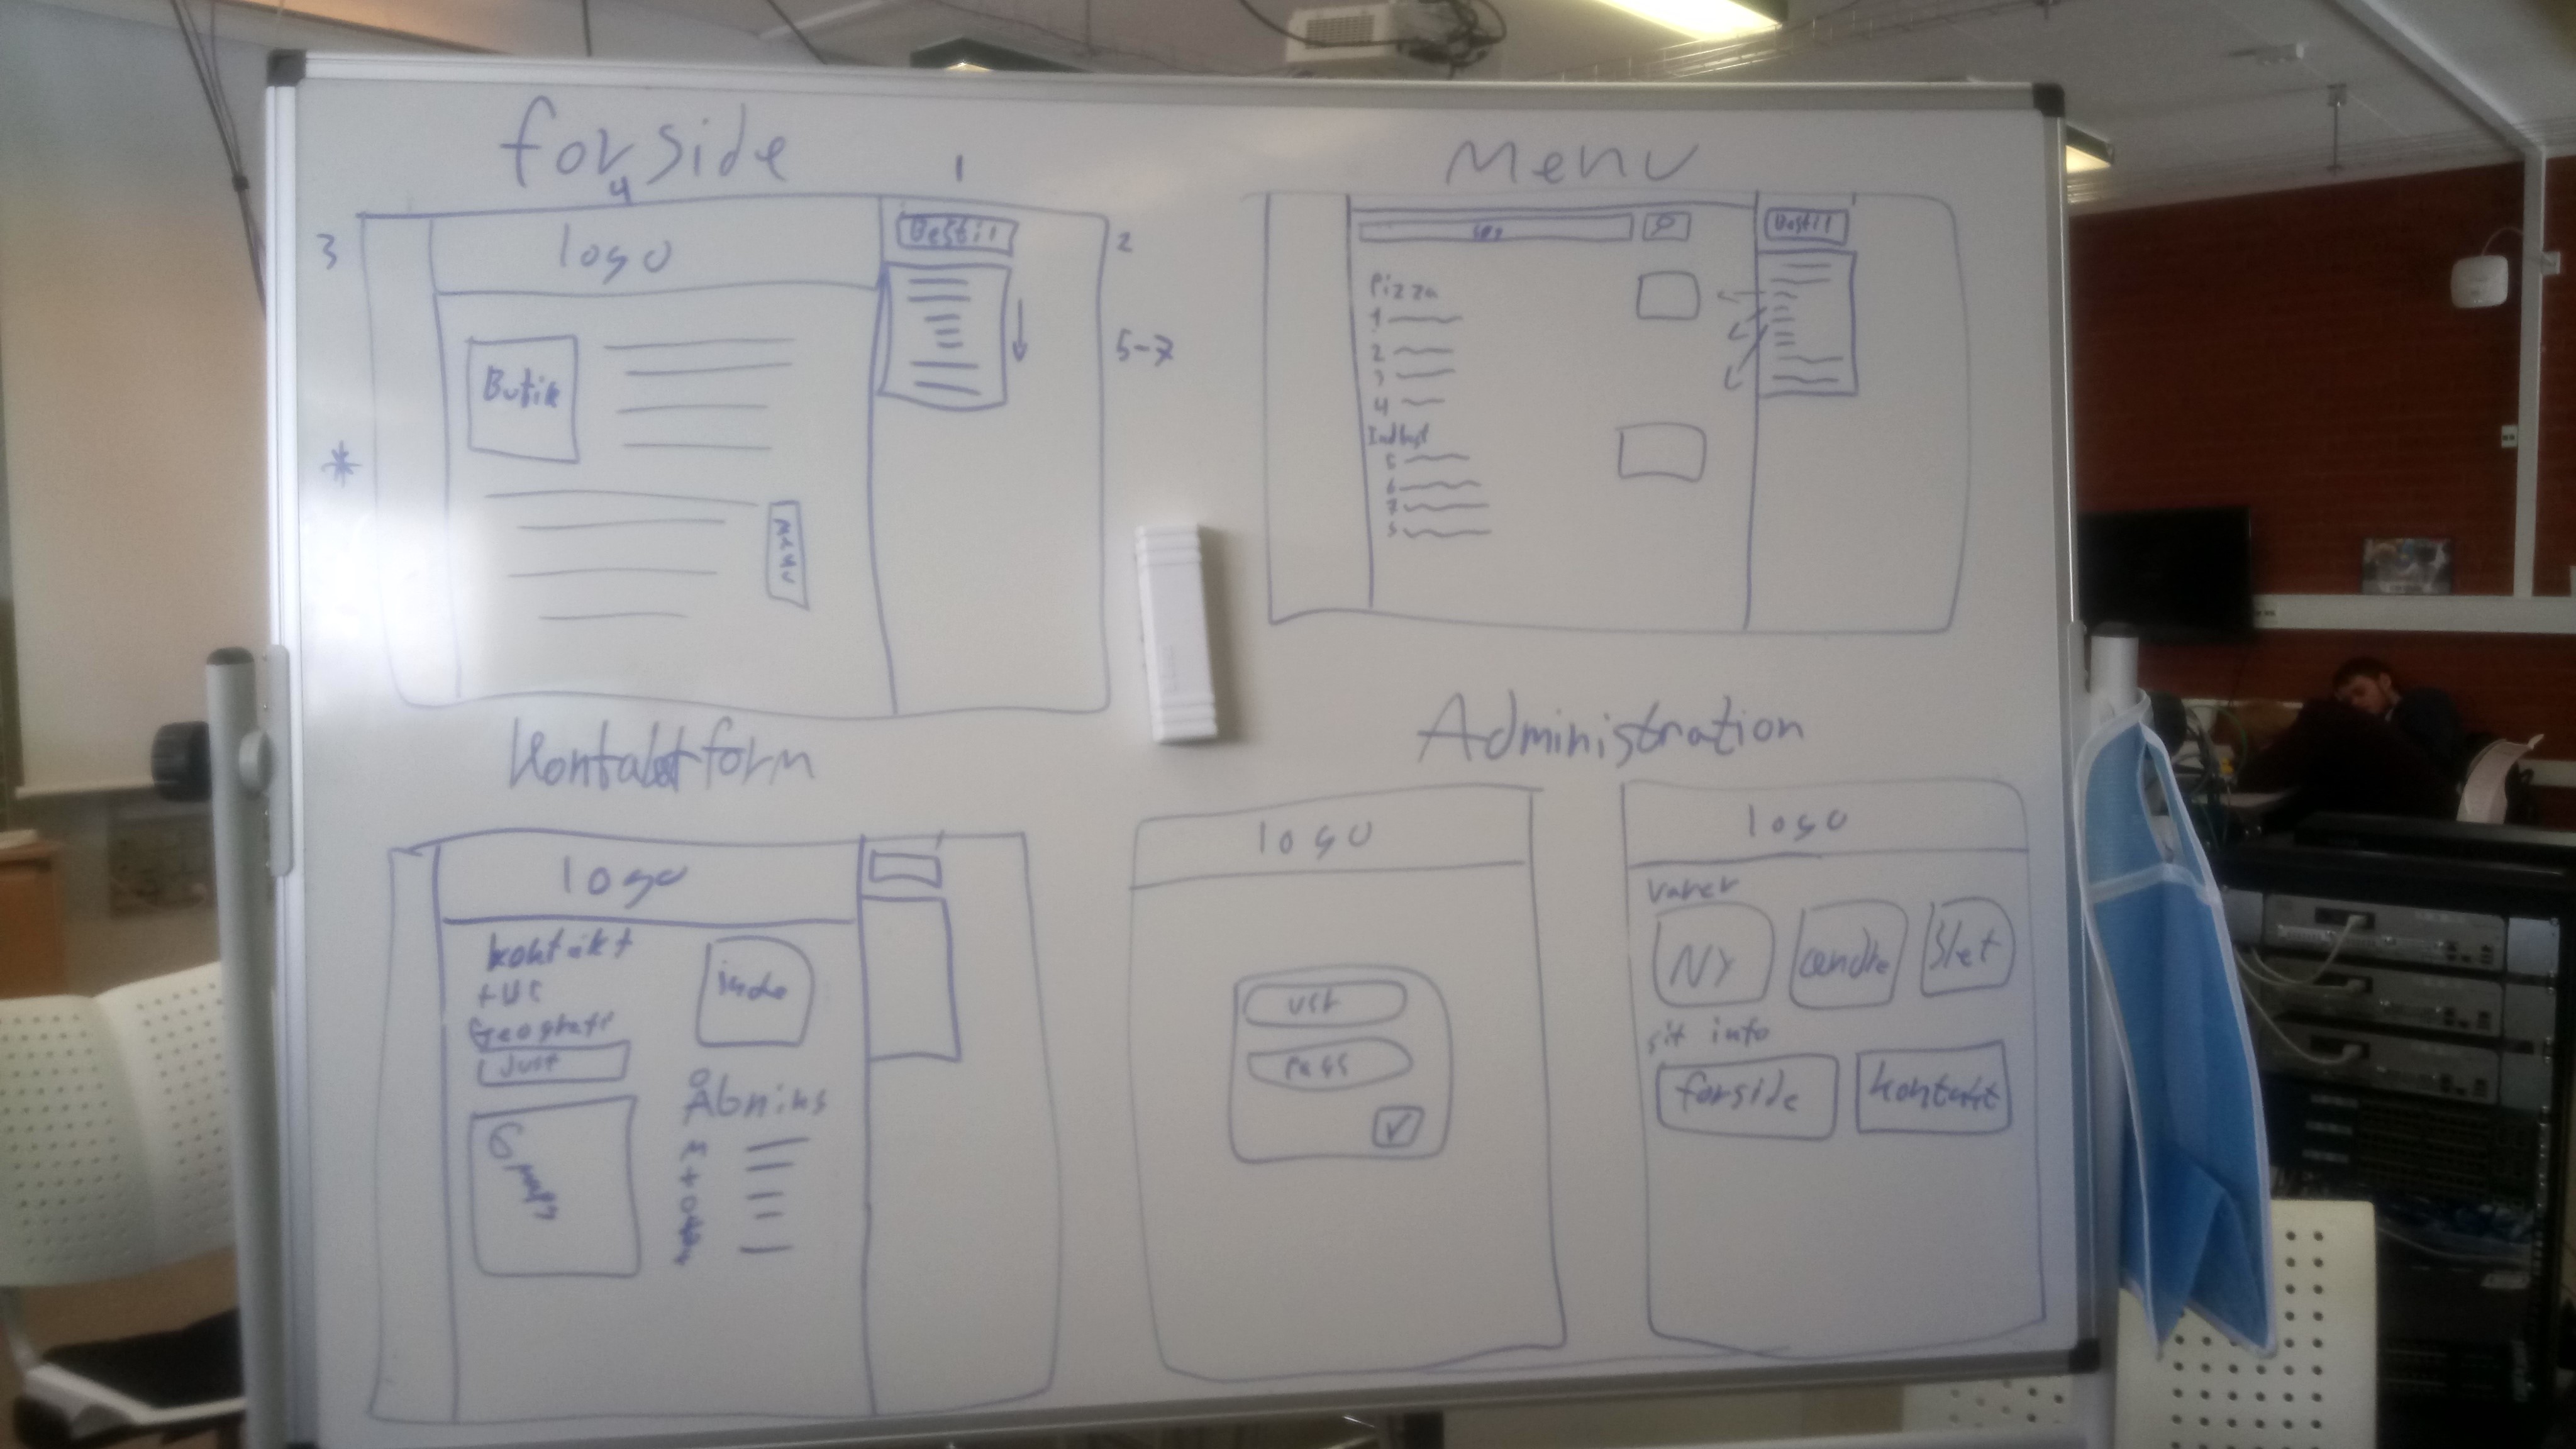 forside
4
1
3
logo
Bestil
2
Butik
5-7
*
menu
Menu
søg
Bestil
Pizza
1
2
3
4
Indbagt
5
6
7
Kontaktform
logo
kontakt
Geografi
Just
G maps
Åbnins
Administration
logo
usr
pass
logo
varer
NY
ændre
Slet
sit info
forside
kontakt